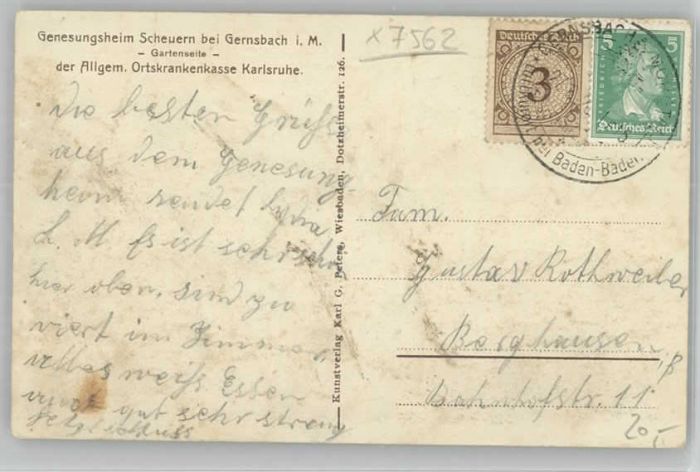 Genesungsheim Scheuern bei Gernsbach i. M.
– Gartenseite –
der Allgem. Ortskrankenkasse Karlsruhe.
Die besten Grüße
aus dem Genesung
heim sendet
L. M. Es ist sehr schön
hier oben. Sind zu
viert im Zimmer
alles weiß Essen
gut sehr streng
Kunstverlag Karl G. Peters, Wiesbaden, Dotzheimerstr. 126.
x 7562
Deutsches Reich
3
5 5
Deutsches Reich
Baden-Baden
Fam.
Gustav Rothweiler
Berghausen
Bahnhofstr. 11
20,-